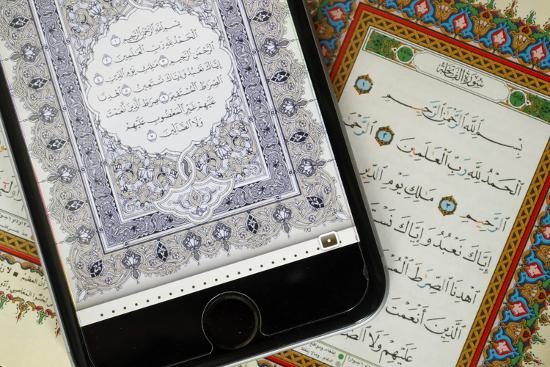 بِسْمِ اللَّهِ الرَّحْمَٰنِ الرَّحِيمِ
الْحَمْدُ لِلَّهِ رَبِّ الْعَالَمِينَ
الرَّحْمَٰنِ الرَّحِيمِ مَالِكِ يَوْمِ الدِّينِ
إِيَّاكَ نَعْبُدُ وَإِيَّاكَ نَسْتَعِينُ اهْدِنَا
الصِّرَاطَ الْمُسْتَقِيمَ صِرَاطَ الَّذِينَ أَنْعَمْتَ
عَلَيْهِمْ غَيْرِ الْمَغْضُوبِ عَلَيْهِمْ
وَلَا الضَّالِّينَ
سُورَةُ الْفَاتِحَة
بِسْمِ اللَّهِ الرَّحْمَٰنِ الرَّحِيمِ
الْحَمْدُ لِلَّهِ رَبِّ الْعَالَمِينَ ٢ الرَّحْمَٰنِ
الرَّحِيمِ ٣ مَلِكِ يَوْمِ الدِّينِ
إِيَّاكَ نَعْبُدُ وَإِيَّاكَ
اهْدِنَا الصِّرَاطَ
الَّذِينَ أَنْعَمْتَ
عَلَيْهِمْ وَلَا